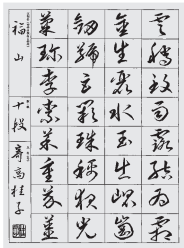 雲騰致雨露結為霜
金生麗水玉出崑崗
劍號巨闕珠稱夜光
菓珍李柰菜重芥薑
福山 十段 高桂子